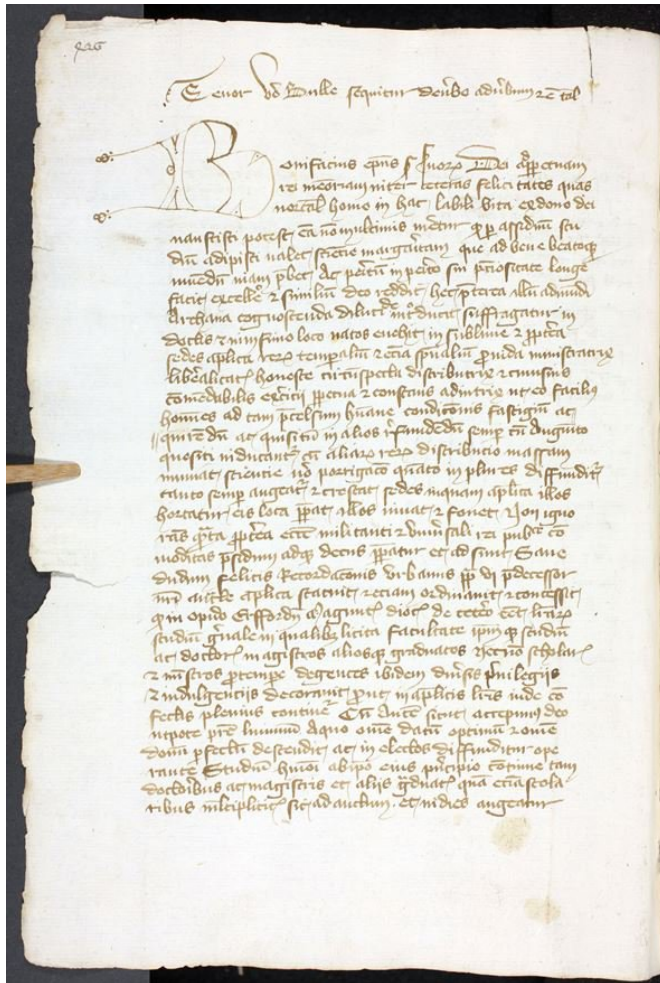 Tenor vero Bulle sequitur de verbo ad verbum et est talis
Bonifacius eps servus servorum Dei ad ppetuam
rei memoriam inter ceteras felicitates quas
mortalis homo in hac labili vita ex dono dei
nancisci potest ea non in ultimis metur qp p assiduum stu
dium adipisci valet scientie margaritam que ad bene beateque
vivendum viam prebet Ac peritum in perito sui preciositate longe
facit excellere et similium deo reddit hec preterea illum ad mundi
Archana cognoscenda dilucide introducit suffragatur in
doctis et in infimo loco natos evehit in sublime et propterea
sedes aplica rerum temporalium et etiam spiritualium provida ministratrix
liberalitatis honeste circumspecta distributrix et cuiusvis
comendabilis exercicii perpetua et constans adiutrix ut eo facilius
homines ad tam precelsum humane conditionis fastigium ac
quirendum ac quisitum in alios refundendum semper cum Augmento
quesiti inducantur cum aliarum rerum distributio massam
minuat scientie vero porrigatio quanto in plures diffunditur
tanto semper augeatur et crescat sedes inquam aplica illos
hortatur eis loca preparat illos iuvat et fovet Non igno
rans quanta propterea etiam militanti et universali rei publice com
moditas presidium adque decus preparatur et adsunt Sane
dudum felicis Recordacionis Urbanus pp vi predecessor
nri auctoritate aplica statuit et etiam ordinavit et concessit
qp in opido Erffordensi Maguntin dioc de cetero esset litterarum
studium generale in qualibet licita facultate ipsumque studium
ac doctores magistros aliosque graduatos necnon scholares
et ministros pro tempore degentes ibidem diversis privilegiis
et indulgentiis decoravit prout in aplicis literis inde con
fectis plenius continetur Cum Autem sicut accepimus deo
utpote patre luminum A quo omne datum optimum et omne
donum perfectum descendit ac in electos diffunditur ope
rante Studium huiusmodi ab ipso eius principio continue tam
doctoribus ac magistris et aliis graduatis quam etiam scola
ribus multipliciter sit ad auctum et in dies augeatur